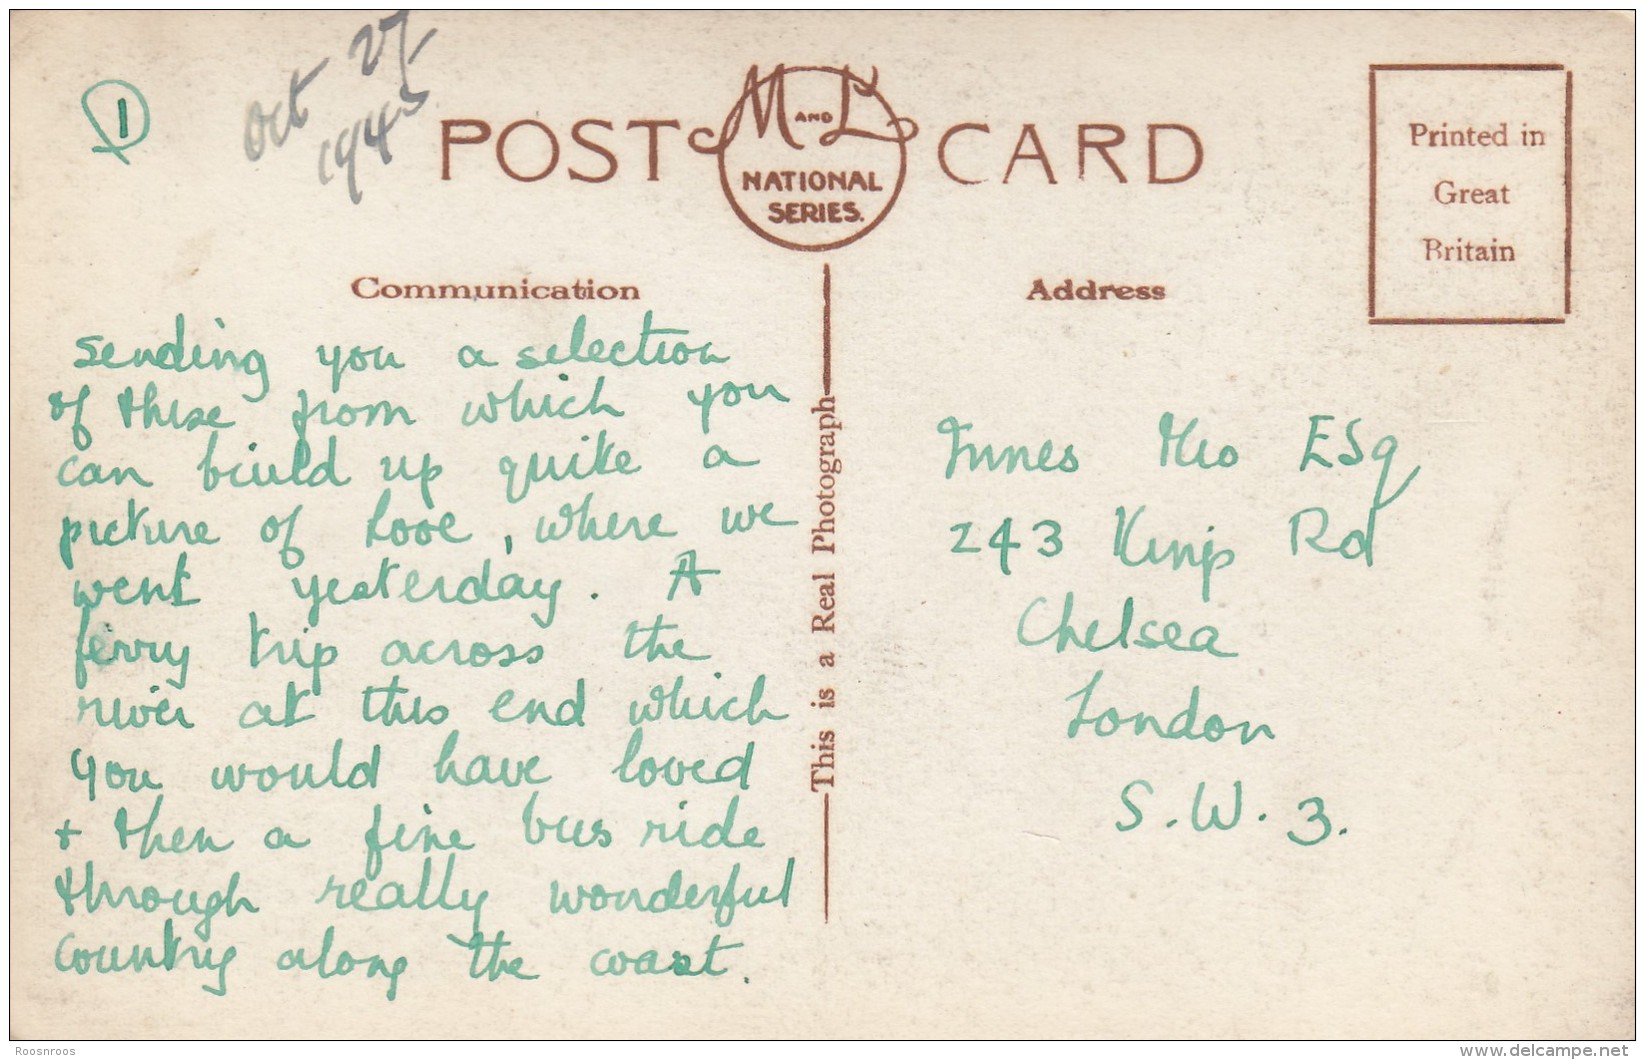 1
Oct 27
1945
POST CARD
M AND L
NATIONAL
SERIES.
Printed in
Great
Britain
Communication
sending you a selection
of these from which you
can biuld up quite a
picture of Looe, where we
went yesterday. A
ferry trip across the
river at this end which
you would have loved
+ then a fine bus ride
through really wonderful
country along the coast.
This is a Real Photograph
Address
Innes Esq
243 Kings Rd
Chelsea
London
S.W.3.
Roosnroos
delcampe.net